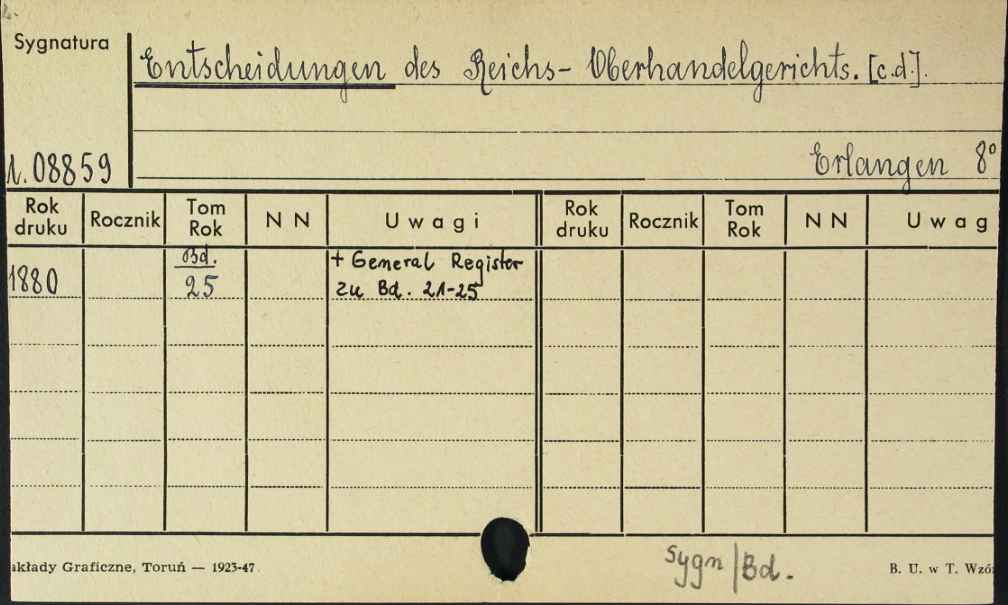 Sygnatura
Entscheidungen des Reichs- Oberhandelgerichts. [c.d.].
Erlangen 8°
1.08859
Rok druku Rocznik Tom Rok N N Uwagi Rok druku Rocznik Tom Rok N N Uwag
1880 Bd. 25 + General Register
zu Bd. 21-25
sygn/Bd.
akłady Graficzne, Toruń — 1923-47 B. U. w T. Wzó